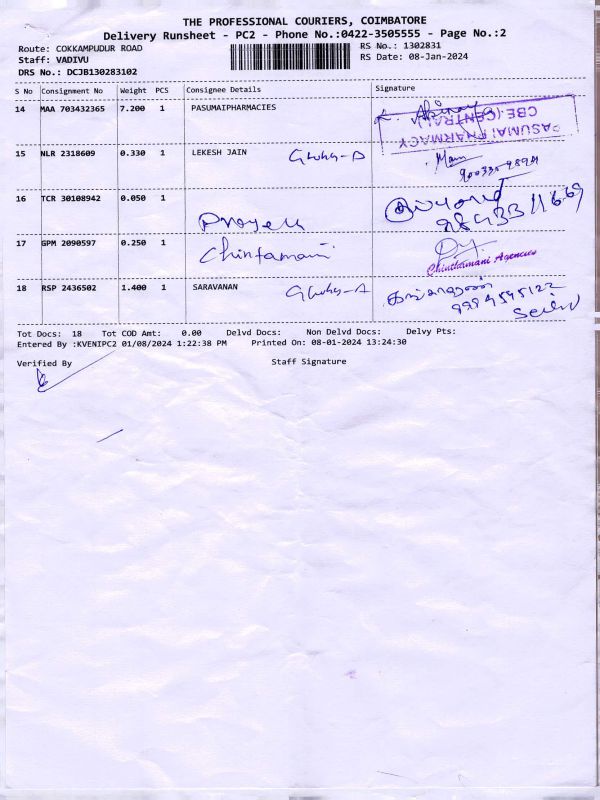 THE PROFESSIONAL COURIERS, COIMBATORE
Delivery Runsheet - PC2 - Phone No.:0422-3505555 - Page No.:2
Route: COKKAMPUDUR ROAD
RS No.: 1302831
Staff: VADIVU
RS Date: 08-Jan-2024
DRS No.: DCJB130283102
S No Consignment No Weight PCS Consignee Details Signature
14 MAA 703432365 7.200 1 PASUMAIPHARMACIES
PASUMAI PHARMACY
CBE (CENTRAL)
15 NLR 2318609 0.330 1 LEKESH JAIN
16 TCR 30108942 0.050 1
17 GPM 2090597 0.250 1 Chintamani
Chinthamani Agencies
18 RSP 2436502 1.400 1 SARAVANAN
Tot Docs: 18 Tot COD Amt: 0.00 Delvd Docs: Non Delvd Docs: Delvy Pts:
Entered By :KVENIPC2 01/08/2024 1:22:38 PM Printed On: 08-01-2024 13:24:30
Verified By Staff Signature